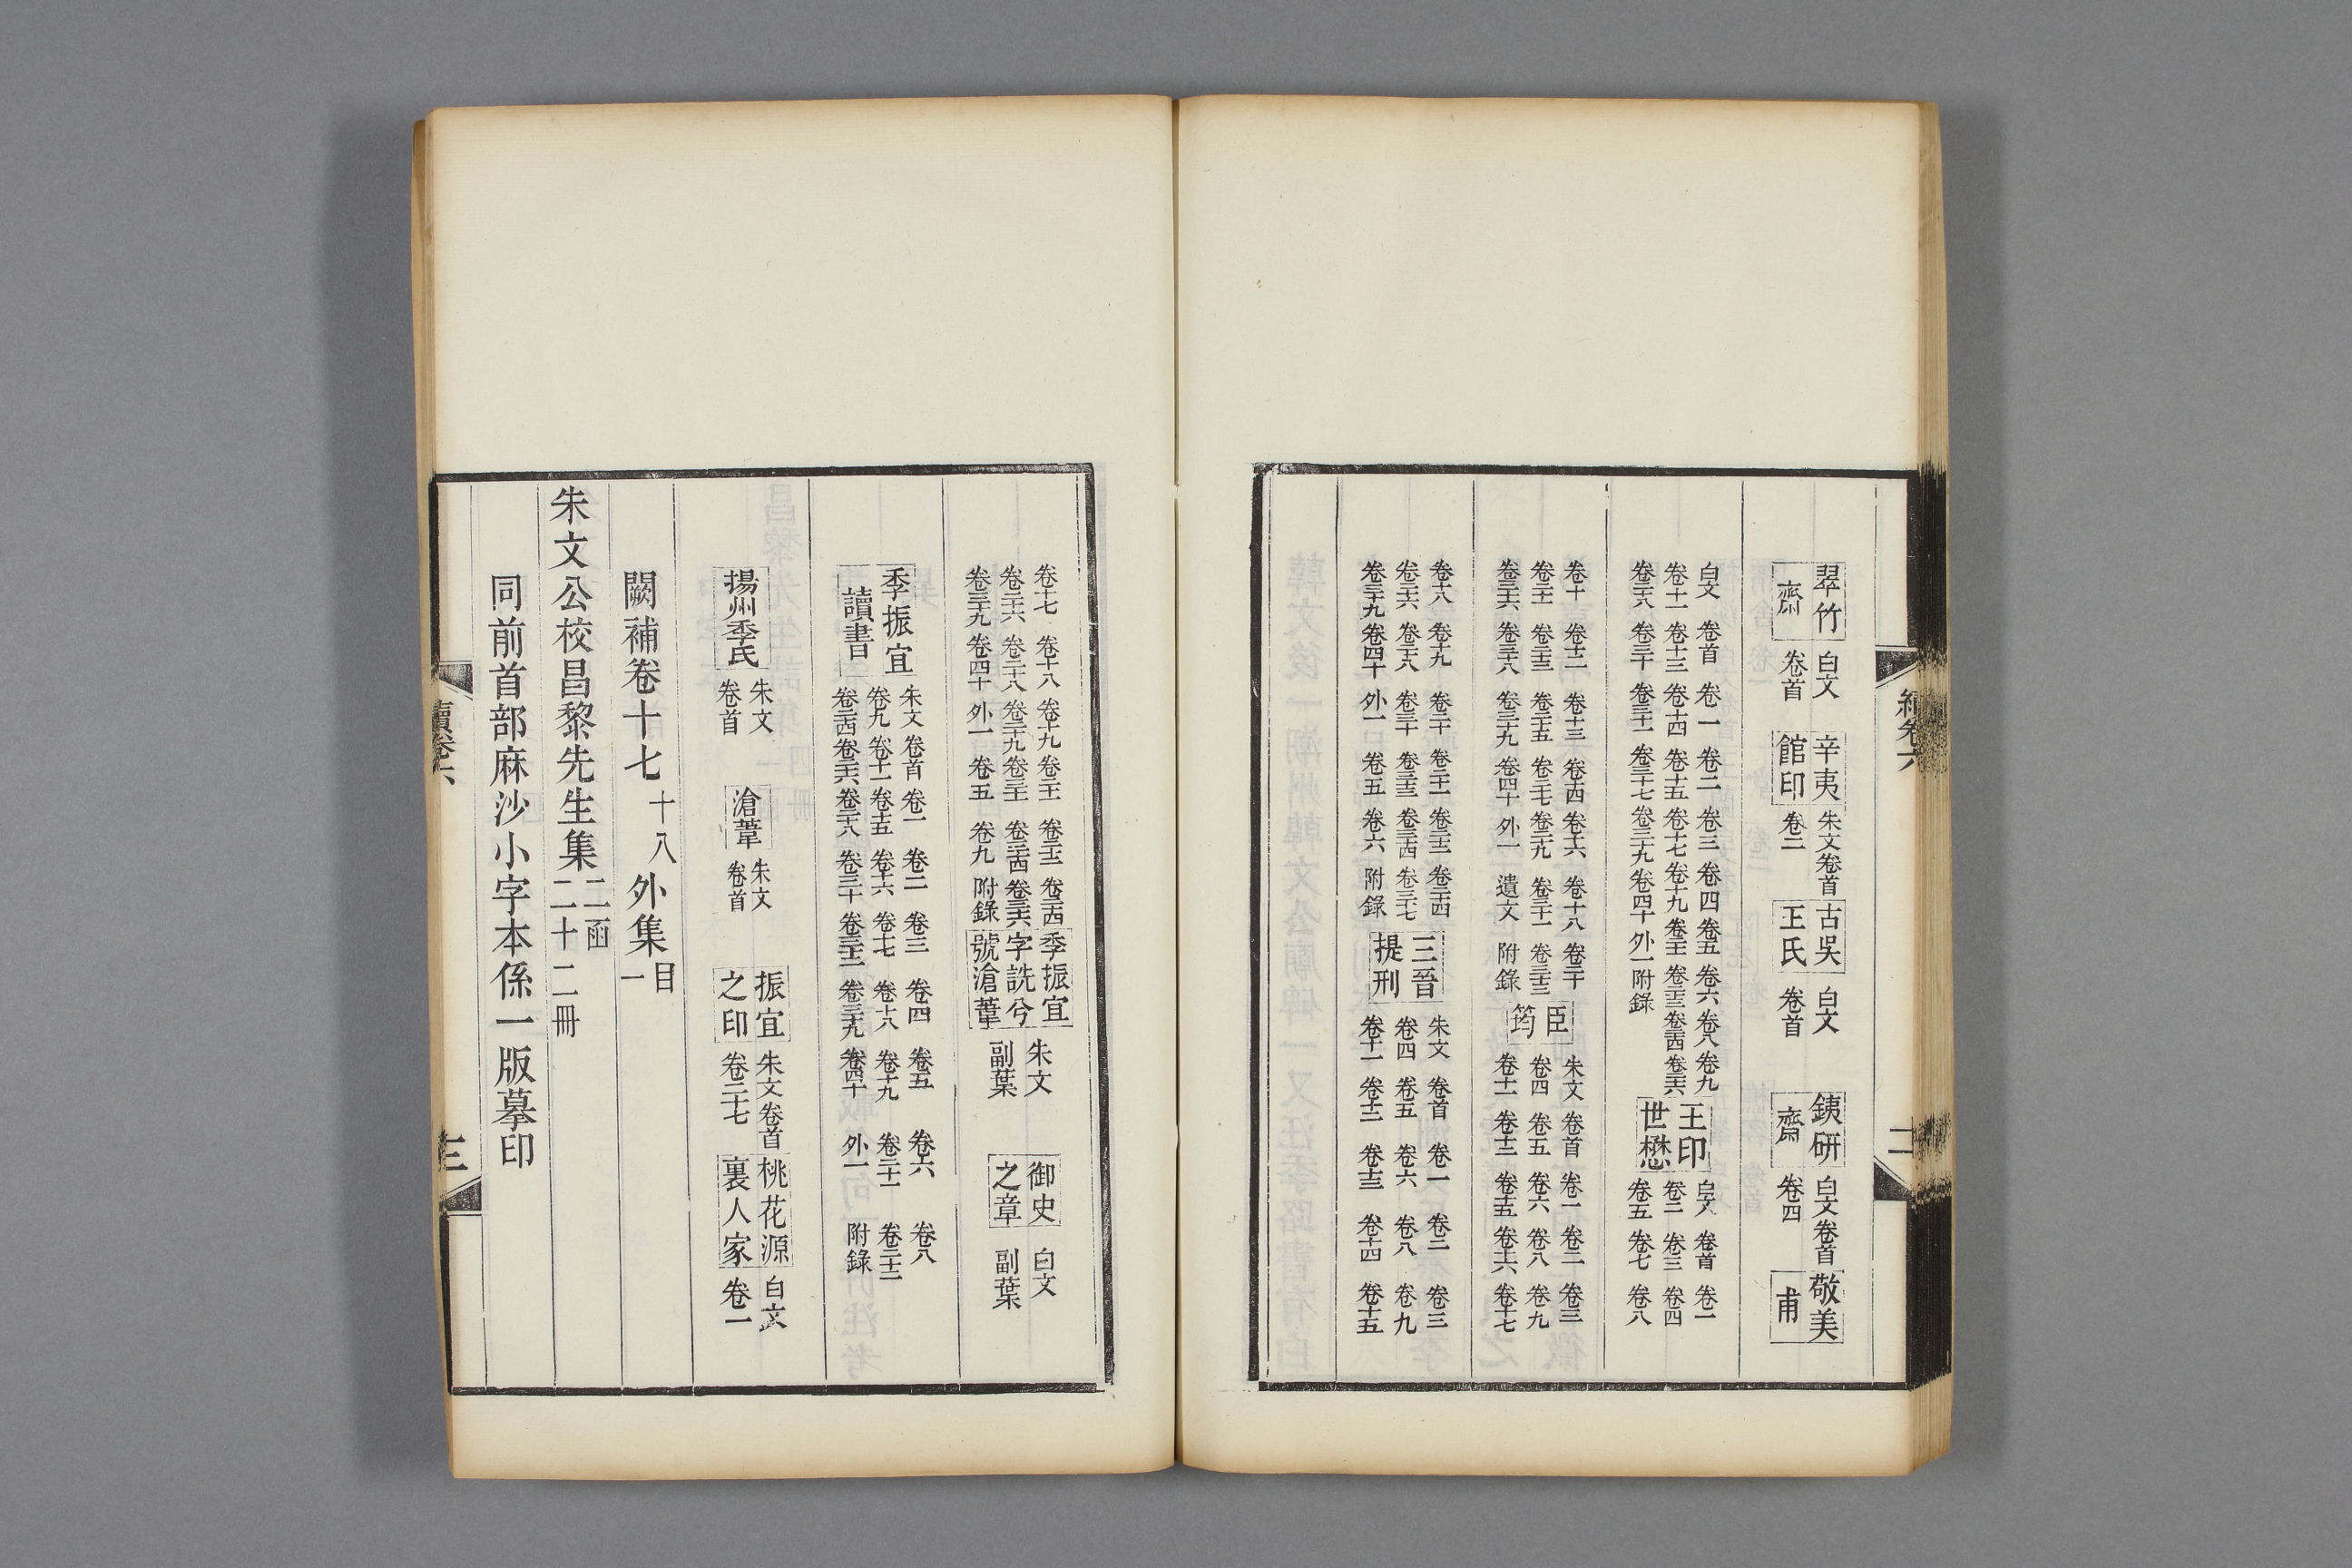 翠竹
齋
白文
卷首
辛夷
館印
朱文卷首
卷二
古吳
王氏
白文
卷首
銕研
齋
白文卷首
卷四
敬美
甫
白文 卷首 卷一 卷二 卷三 卷四 卷五 卷六 卷八 卷九
卷十一 卷十三 卷十四 卷十五 卷十七 卷十九
卷三十 卷三十一 卷三十七 卷三十九 卷四十 外一 附錄
王印
世懋
白文 卷首 卷一
卷二 卷三 卷四
卷五 卷七 卷八
卷十 卷十二 卷十三 卷十四 卷十六 卷十八 卷二十
卷四十 外一 遺文 附錄
臣
筠
朱文 卷首 卷一 卷二 卷三
卷四 卷五 卷六 卷八 卷九
卷十一 卷十二 卷十五 卷十六 卷十七
卷十八 卷十九 卷二十 卷二十一 卷二十二 卷二十四
卷三十九 卷四十 外一 卷五 卷六 附錄
三晉
提刑
朱文 卷首 卷一 卷二 卷三
卷四 卷五 卷六 卷八 卷九
卷十一 卷十二 卷十三 卷十四 卷十五
續卷六
二
卷十七 卷十八 卷十九 卷二十一 卷二十二 卷二十四
卷二十六 卷二十八 卷二十九 卷三十一 卷三十四 卷三十六
卷三十九 卷四十 外一 卷五 卷九 附錄
季振宜
字詵兮
號滄葦
朱文
副葉
御史
之章
白文
副葉
季振宜
讀書
朱文 卷首 卷一 卷二 卷三 卷四 卷五 卷六 卷八
卷九 卷十一 卷十五 卷十六 卷十七 卷十八 卷十九 卷二十一 卷二十二
卷二十四 卷二十六 卷二十八 卷三十 卷三十二 卷三十九 卷四十 外一 附錄
揚州季氏
朱文
卷首
滄葦
朱文
卷首
振宜
之印
朱文卷首
卷二十七
桃花源
裏人家
白文
卷一
闕補卷十七十八外集目一
朱文公校昌黎先生集
二函
二十二冊
同前首部麻沙小字本係一版摹印
續卷六
三